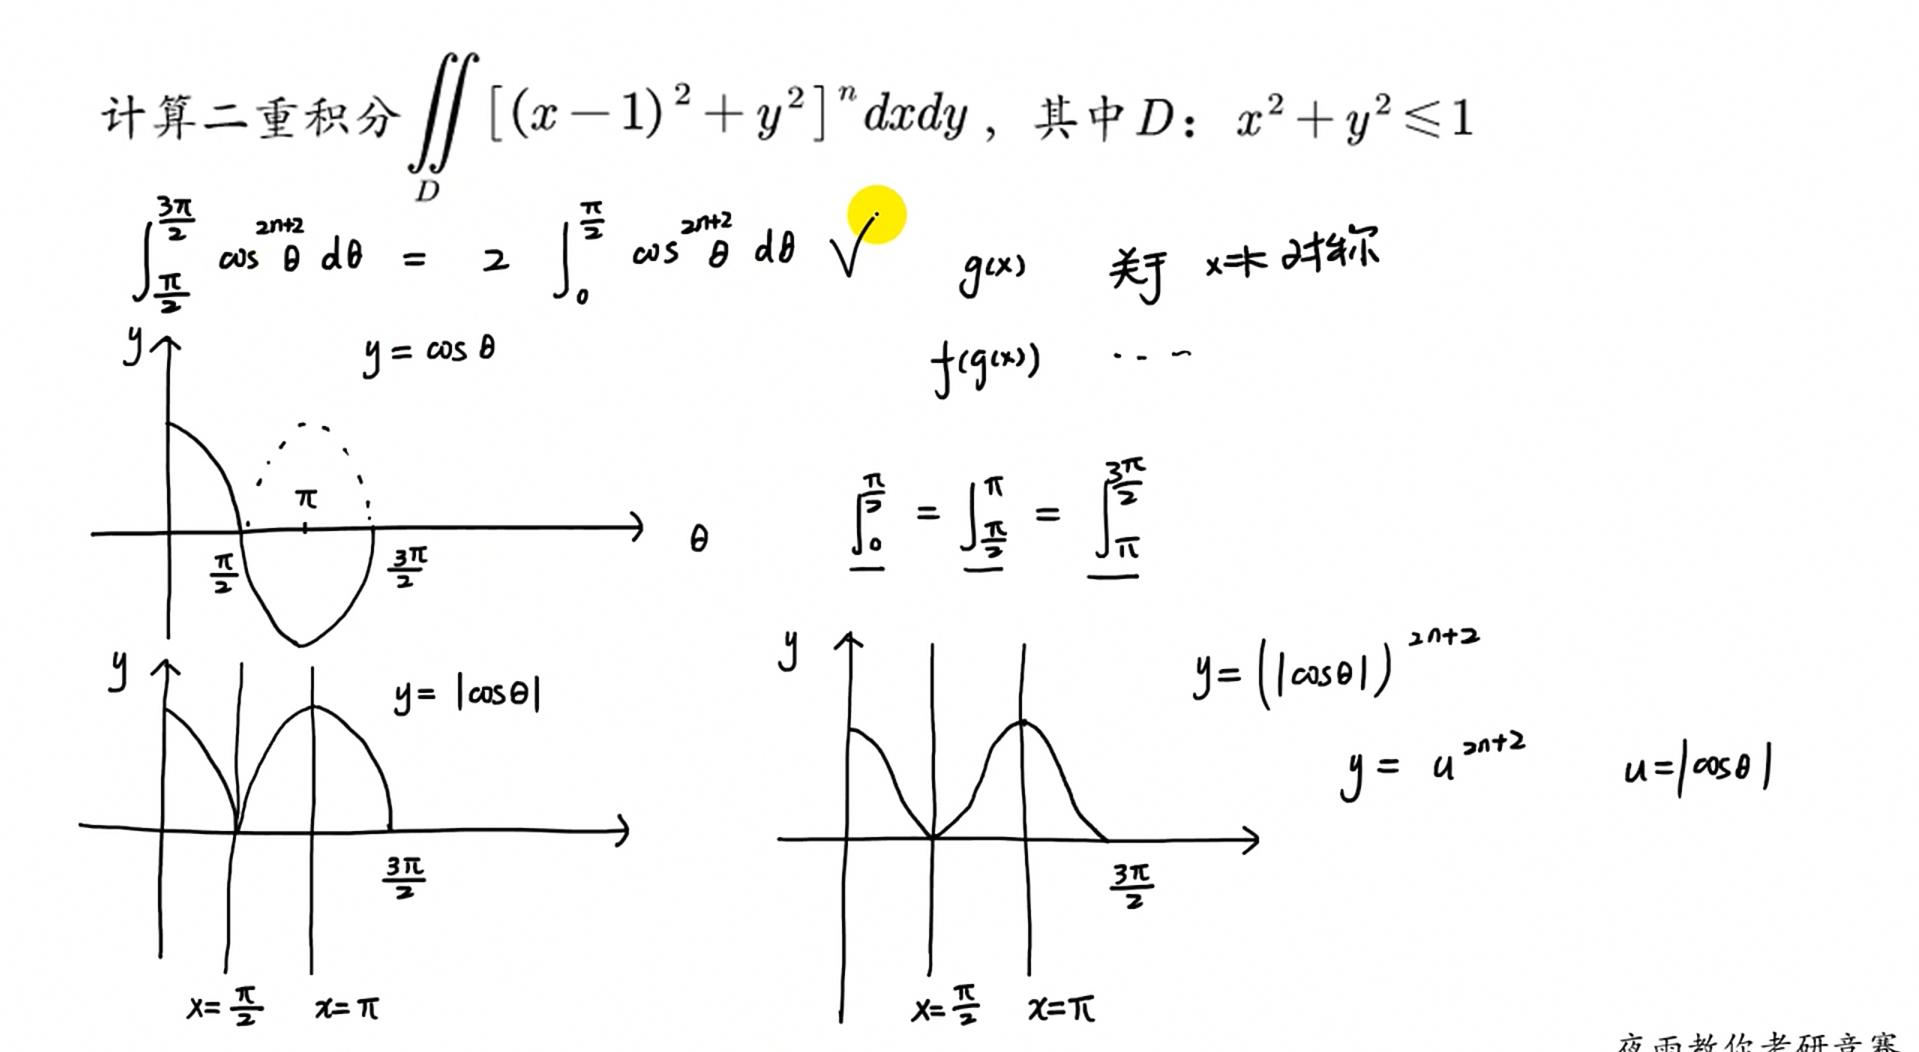 计算二重积分∬_D [(x−1)²+y²]ⁿdxdy，其中D：x²+y²⩽1
∫_{π/2}^{3π/2} cos^{2n+2}θ dθ = 2 ∫_0^{π/2} cos^{2n+2}θ dθ √ g(x) 关于 x=k 对称
y y=cosθ f(g(x)) ...
π
π/2 3π/2 θ
∫_0^{π/2} = ∫_{π/2}^{π} = ∫_{π}^{3π/2}
y y=|cosθ|
3π/2
x=π/2 x=π
y y=(|cosθ|)^{2n+2}
y=u^{2n+2} u=|cosθ|
3π/2
x=π/2 x=π
夜雨教你考研竞赛